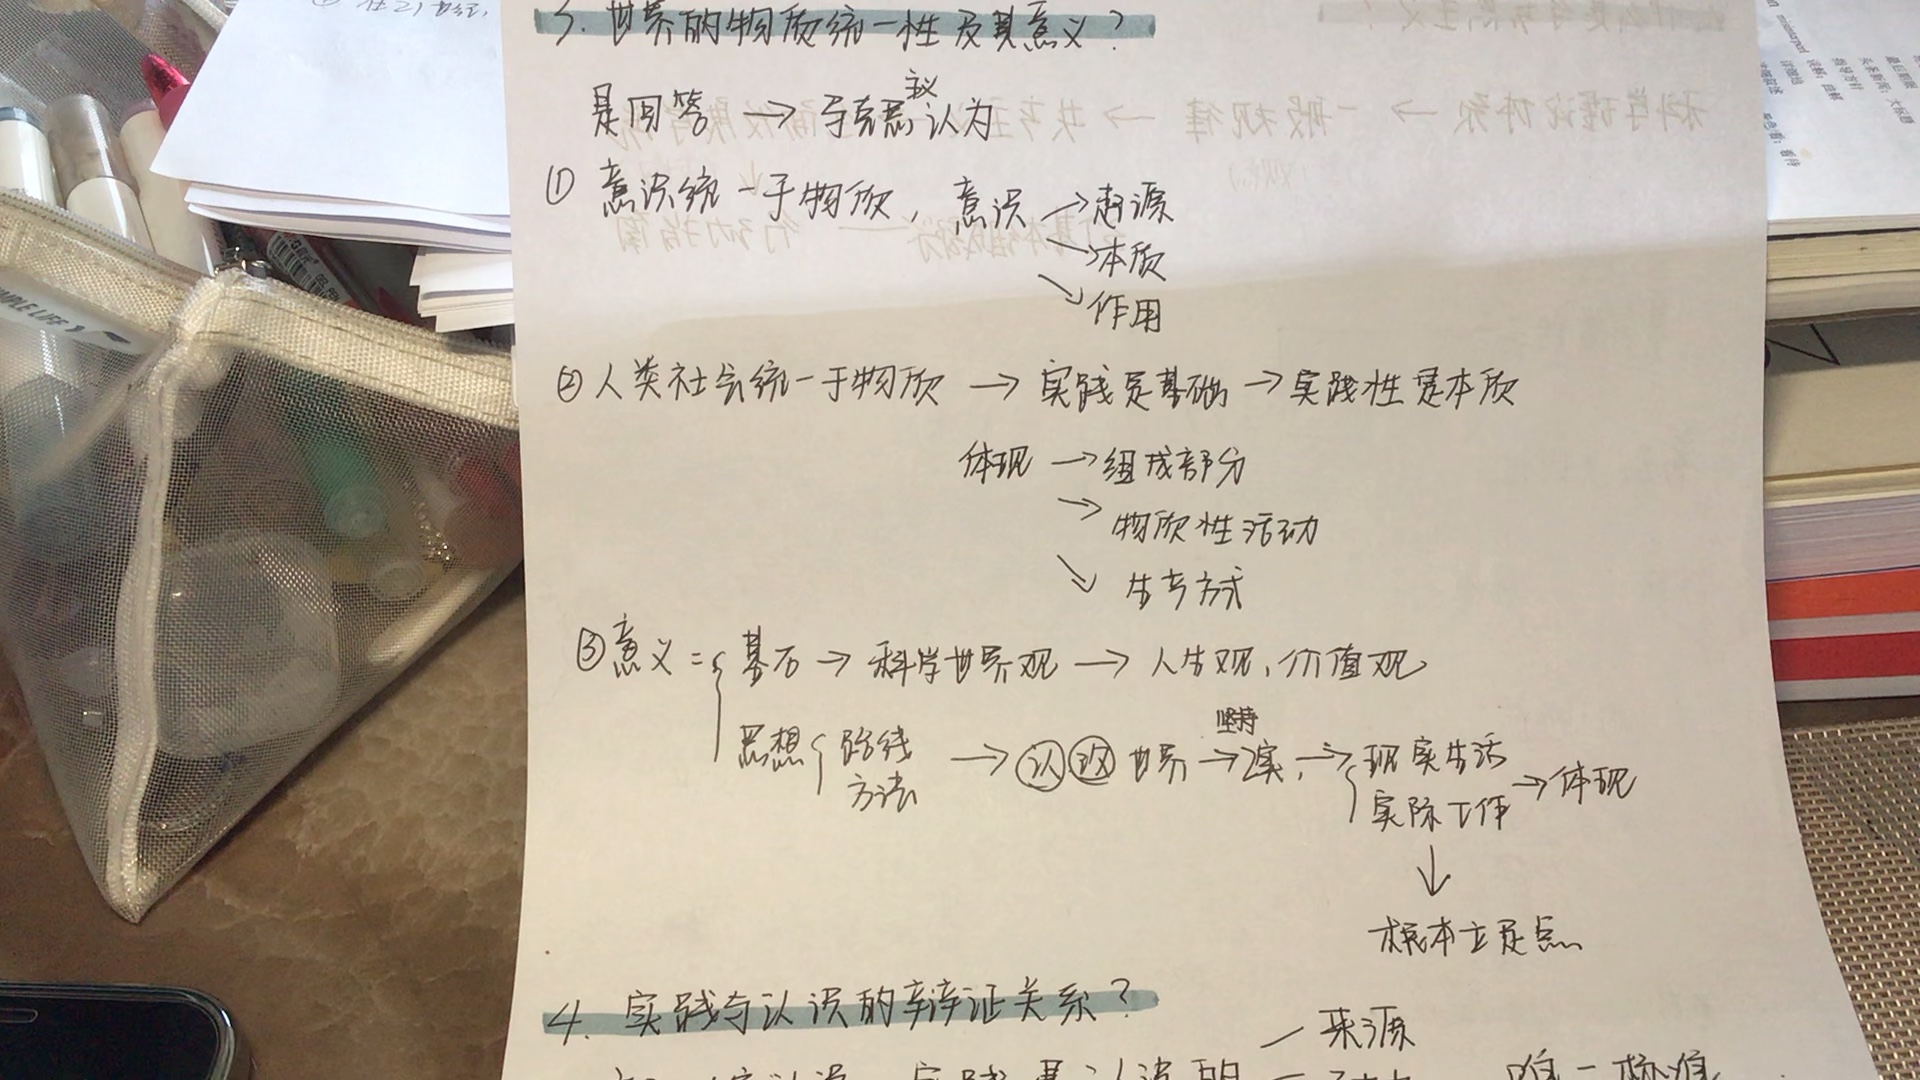 3. 世界的物质统一性及其意义?
是回答 → 马克思主义认为
① 意识统一于物质, 意识 → 起源
→ 本质
→ 作用
② 人类社会统一于物质 → 实践是基础 → 实践性是本质
体现 → 组成部分
→ 物质性活动
→ 生产方式
③ 意义 = { 基石 → 科学世界观 → 人生观, 价值观
思想 { 路线 → 认 改 世界 → 坚持 实, → { 现实生活
方法 实际工作 → 体现
↓
根本立足点
4. 实践与认识的辩证关系?
来源
唯一标准
SIMPLE LIFE